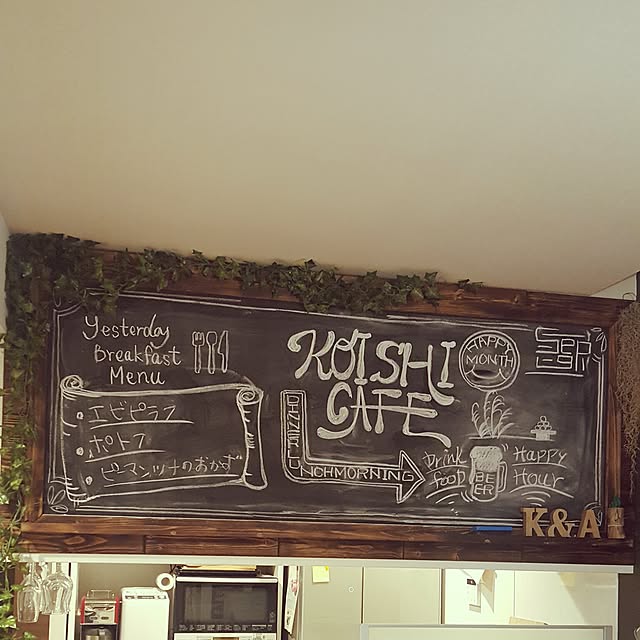 Yesterday
Breakfast
Menu
・エビピラフ
・ポトフ
・ピーマンツナのおかず
KOISHI
CAFE
NCHMORNING
HAPPY
MONTH
Drink
food
BE
ER
Happy
Hour
K&A